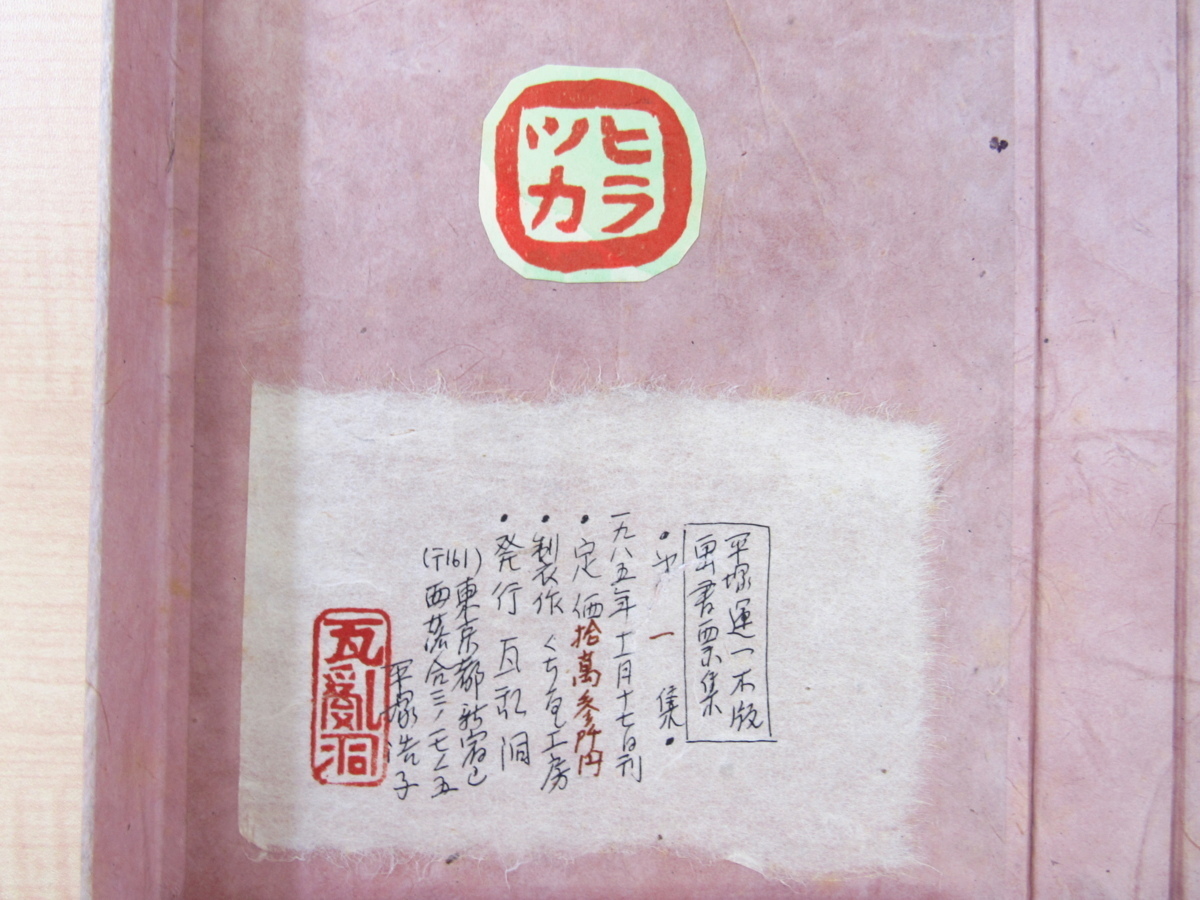 ヒラ
ツカ
平塚運一木版
画書票集
・第一集・
一九八五年十一月十七日刊
・定価拾萬参阡円
・製作 くちゑ工房
・発行 瓦乱洞
(〒161)東京都新宿区
西落合三ノ一七ノ五
平塚浩子
瓦亂洞